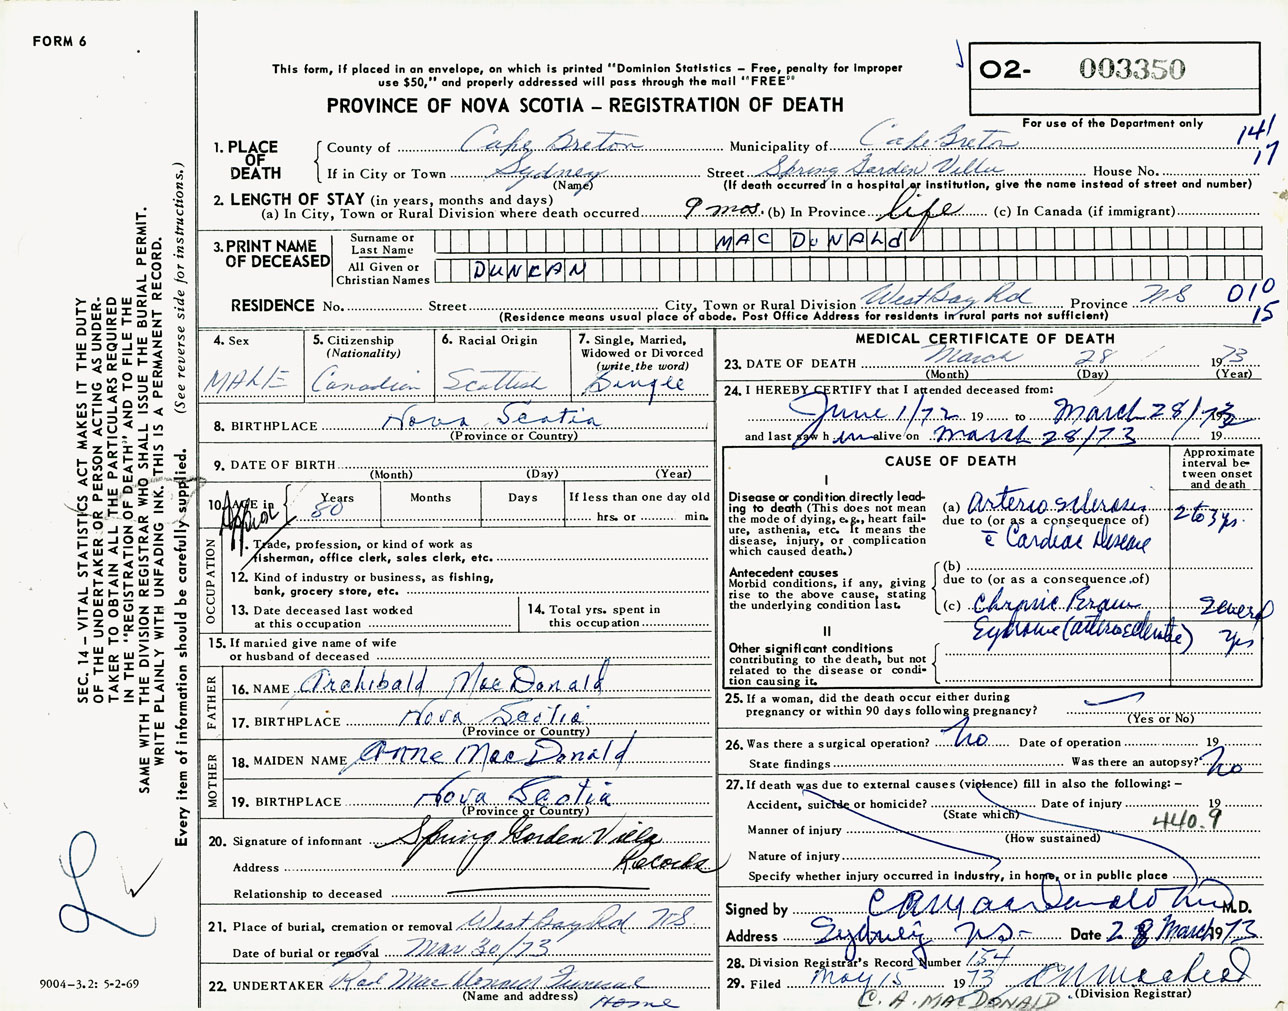 FORM 6
This form, if placed in an envelope, on which is printed "Dominion Statistics – Free, penalty for improper
use $50," and properly addressed will pass through the mail "FREE"
PROVINCE OF NOVA SCOTIA – REGISTRATION OF DEATH
02- 003350
For use of the Department only
141
17
1. PLACE OF DEATH
County of Cape Breton Municipality of Cape Breton
If in City or Town Sydney Street Spring Garden Villa House No.
(Name) (If death occurred in a hospital or institution, give the name instead of street and number)
2. LENGTH OF STAY (in years, months and days)
(a) In City, Town or Rural Division where death occurred 9 mos. (b) In Province life (c) In Canada (if immigrant)
3. PRINT NAME OF DECEASED
Surname or Last Name MAC DONALD
All Given or Christian Names DUNCAN
RESIDENCE No. Street City, Town or Rural Division West Bay Rd Province NS 010
15
(Residence means usual place of abode. Post Office Address for residents in rural parts not sufficient)
4. Sex MALE
5. Citizenship (Nationality) Canadian
6. Racial Origin Scottish
7. Single, Married, Widowed or Divorced (write the word) Single
8. BIRTHPLACE Nova Scotia
(Province or Country)
9. DATE OF BIRTH
(Month) (Day) (Year)
10. AGE in Approx Years 80 Months Days If less than one day old
hrs. or min.
OCCUPATION
Trade, profession, or kind of work as
fisherman, office clerk, sales clerk, etc.
12. Kind of industry or business, as fishing,
bank, grocery store, etc.
13. Date deceased last worked
at this occupation
14. Total yrs. spent in
this occupation
15. If married give name of wife
or husband of deceased
FATHER
16. NAME Archibald MacDonald
17. BIRTHPLACE Nova Scotia
(Province or Country)
MOTHER
18. MAIDEN NAME Anne MacDonald
19. BIRTHPLACE Nova Scotia
(Province or Country)
20. Signature of informant Spring Garden Villa
Address Records
Relationship to deceased
21. Place of burial, cremation or removal West Bay Rd NS
Date of burial or removal Mar 30/73
22. UNDERTAKER Funeral
(Name and address) Home
MEDICAL CERTIFICATE OF DEATH
23. DATE OF DEATH March 28 1973
(Month) (Day) (Year)
24. I HEREBY CERTIFY that I attended deceased from:
June 1/72 19 to March 28/73 19
and last saw h im alive on March 28/73 19
CAUSE OF DEATH
Approximate interval between onset and death
I
Disease or condition directly lead-
ing to death (This does not mean
the mode of dying, e.g., heart fail-
ure, asthenia, etc. It means the
disease, injury, or complication
which caused death.)
(a) Arteriosclerosis 2 to 3 yrs.
due to (or as a consequence of)
c̄ Cardiac Disease
Antecedent causes
Morbid conditions, if any, giving
rise to the above cause, stating
the underlying condition last.
(b)
due to (or as a consequence of)
(c) Chronic Brain Several
Syndrome (arteriosclerotic) yrs
II
Other significant conditions
contributing to the death, but not
related to the disease or condi-
tion causing it.
25. If a woman, did the death occur either during
pregnancy or within 90 days following pregnancy?
(Yes or No)
26. Was there a surgical operation? No Date of operation 19
State findings Was there an autopsy? No
27. If death was due to external causes (violence) fill in also the following: –
Accident, suicide or homicide? Date of injury 19
(State which) 440.9
Manner of injury
(How sustained)
Nature of injury
Specify whether injury occurred in industry, in home, or in public place
Signed by C A MacDonald M.D.
Address Sydney NS- Date 28 March 1973
28. Division Registrar's Record Number 154
29. Filed May 15 1973
(Division Registrar)
C. A. MACDONALD
SEC. 14 – VITAL STATISTICS ACT MAKES IT THE DUTY
OF THE UNDERTAKER OR PERSON ACTING AS UNDER-
TAKER TO OBTAIN ALL THE PARTICULARS REQUIRED
IN THE "REGISTRATION OF DEATH" AND TO FILE THE
SAME WITH THE DIVISION REGISTRAR WHO SHALL ISSUE THE BURIAL PERMIT.
WRITE PLAINLY WITH UNFADING INK. THIS IS A PERMANENT RECORD.
Every item of information should be carefully supplied. (See reverse side for instructions.)
9004-3.2: 5-2-69